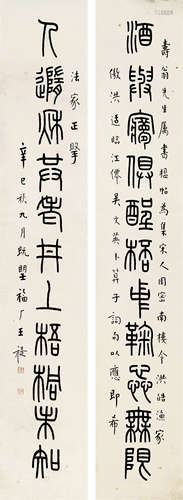 酒與㝱俱醒桮中鞠蕊無限
壽翁先生屬書楹帖為集宋人周密南樓令洪皓漁家
傲洪适臨江僊吳文英卜算子詞句以應即希
法家正掔
人秋共老井上梧桐未知
辛巳秋九月既望福厂王禔